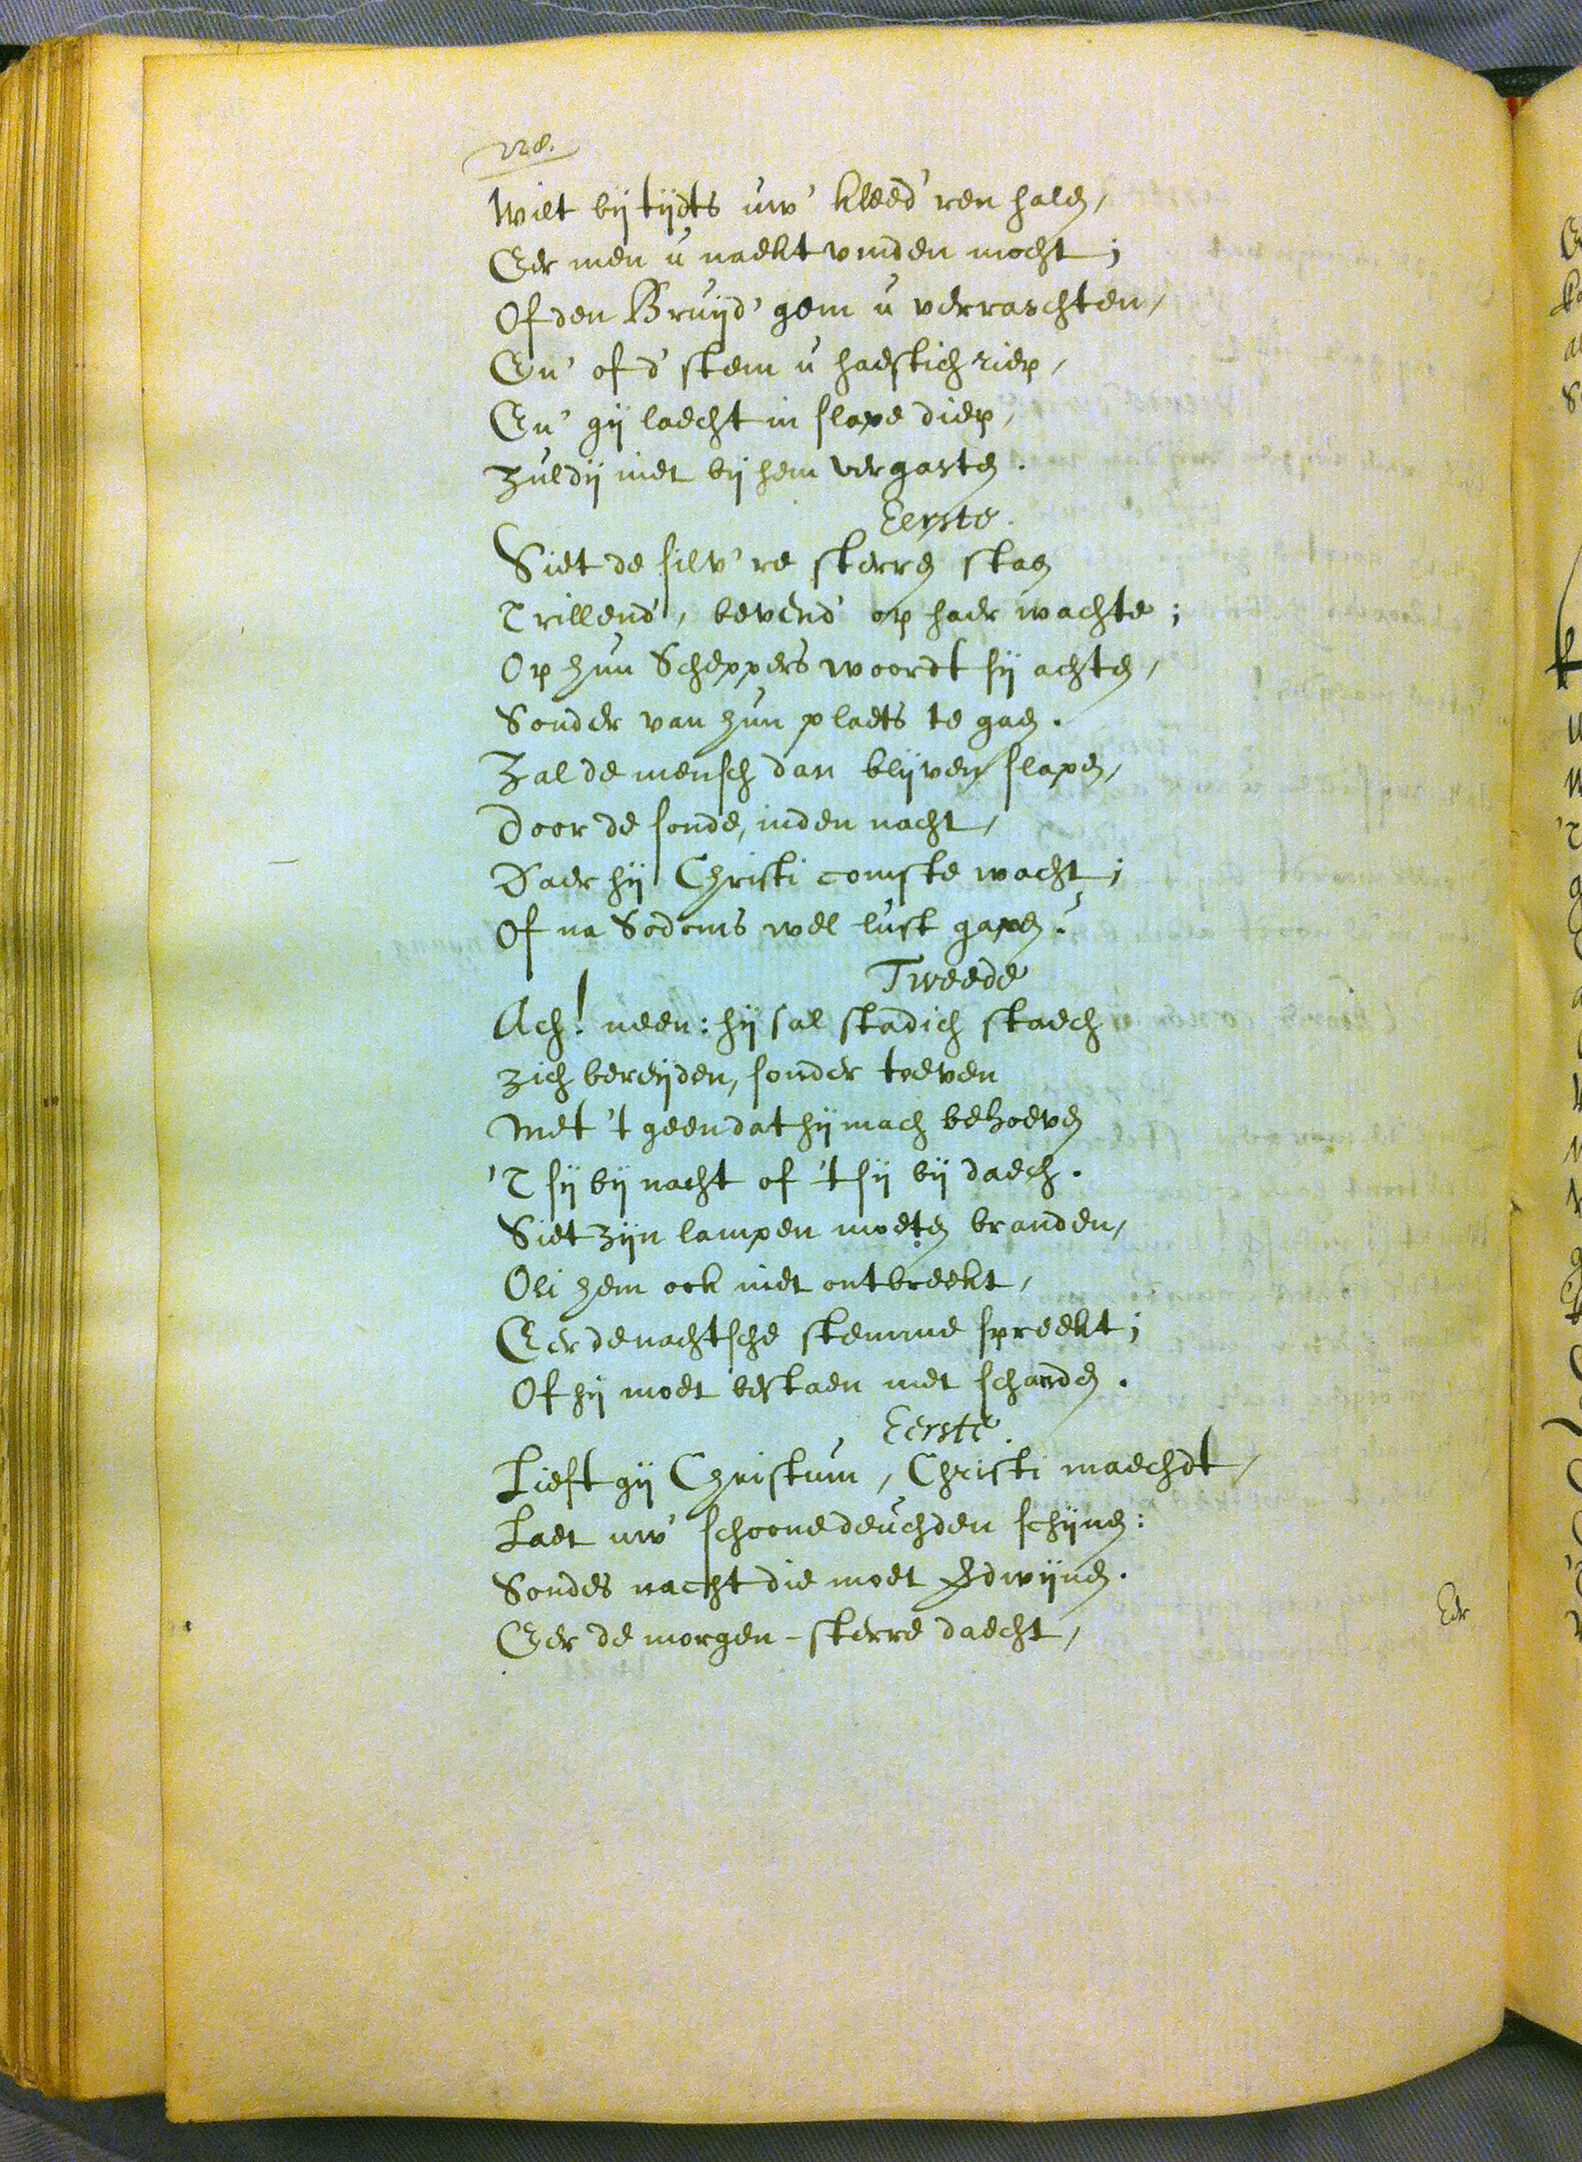 228.
Wilt bij tijdts uw' kleed'ren halen,
Eer men u naekt vinden mocht;
Of den Bruijd'gem u verraschten,
En' of d' stem u haestich riep,
En' gij laecht in slape diep,
Zuldij niet bij hem vergasten.
Eerste.
Siet de silv're sterren staen
Trillend', bevend' op haer wachte;
Op hun Scheppers woordt sij achten,
Sonder van hun plaets te gaen.
Zal de mensch dan blijven slapen,
Door de sonde, inden nacht,
Daer hij Christi comste wacht;
Of na Sodoms wellust gapen?
Tweede
Ach! neen: hij sal stadich staech
zich bereijden, sonder toeven
Met 't geen dat hij mach behoeven
'T sij bij nacht of 't sij bij daech.
Siet zijn lampen moeten branden,
Oli hem ook niet ontbreekt,
Eer de nachtsche stemme spreekt;
Of hij moet bestaen met schanden.
Eerste.
Lieft gij Christum, Christi maechdt,
Laet uw' schoone deuchden schijnen:
Sondes nacht die moet verdwijnen.
Eer de morgen-sterre daecht,
Eer